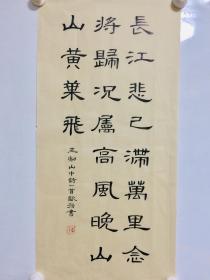 長江悲已滯萬里念
將歸況屬高風晚山
山黃葉飛
王勃山中詩一首